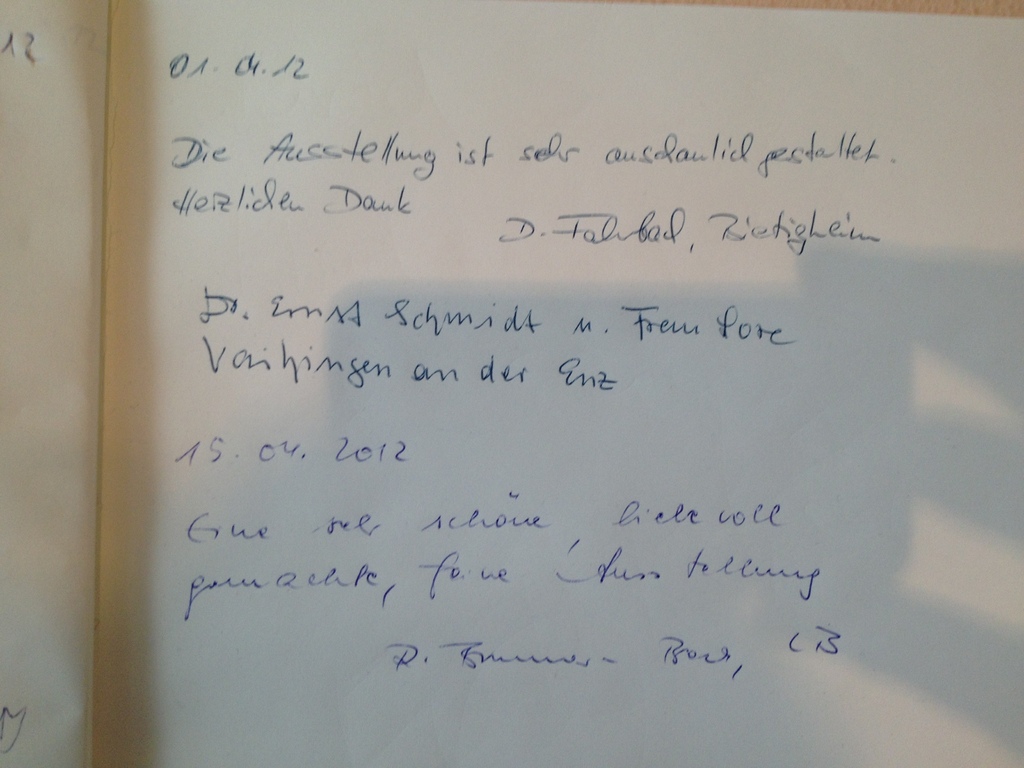 12
01.04.12
Die Ausstellung ist sehr anschaulich gestaltet.
Herzlichen Dank
D. Fahrbach, Bietigheim
Dr. Ernst Schmidt u. Frau Lore
Vaihingen an der Enz
15.04.2012
Eine sehr schöne, liebevoll
gemachte, feine Ausstellung
LB